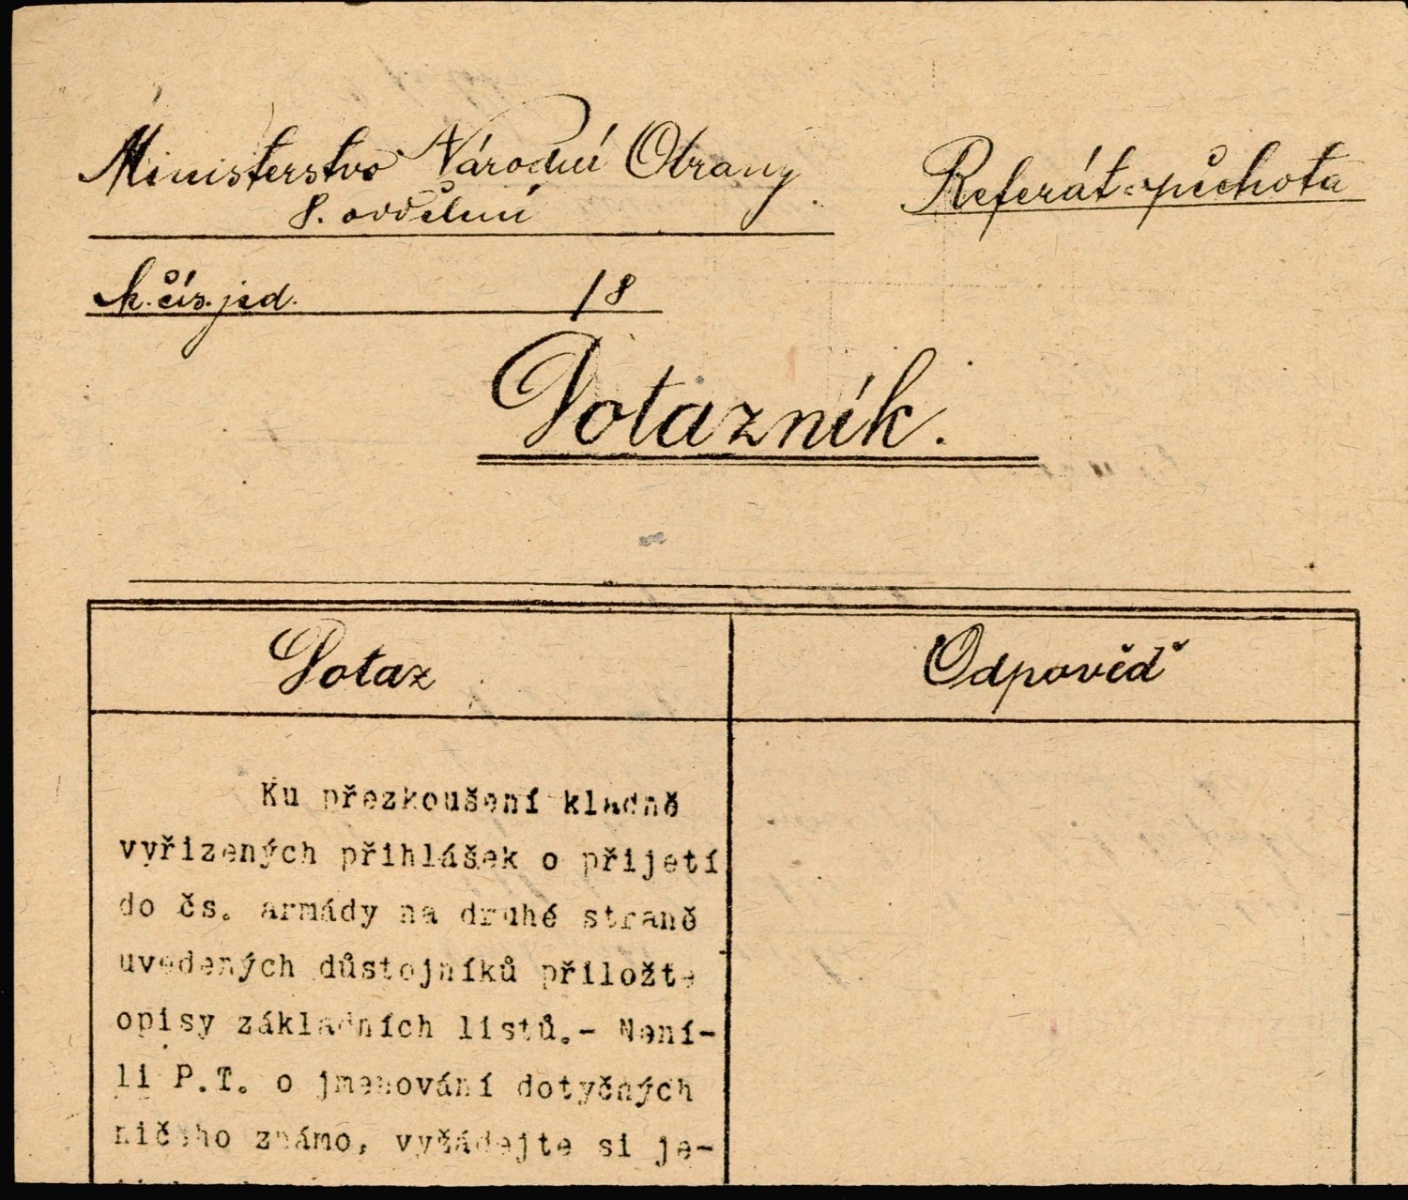 Ministerstvo Národní Obrany
8. oddělení
Referát-pěchota
k.čís.jed. /8
Dotazník.
Dotaz
Odpověď
Ku přezkoušení kladně
vyřizených přihlášek o přijetí
do čs. armády na druhé straně
uvedených důstojníků přiložte
opisy základních listů.- Není-
li P.T. o jmenování dotyčných
ničeho známo, vyžádejte si je-